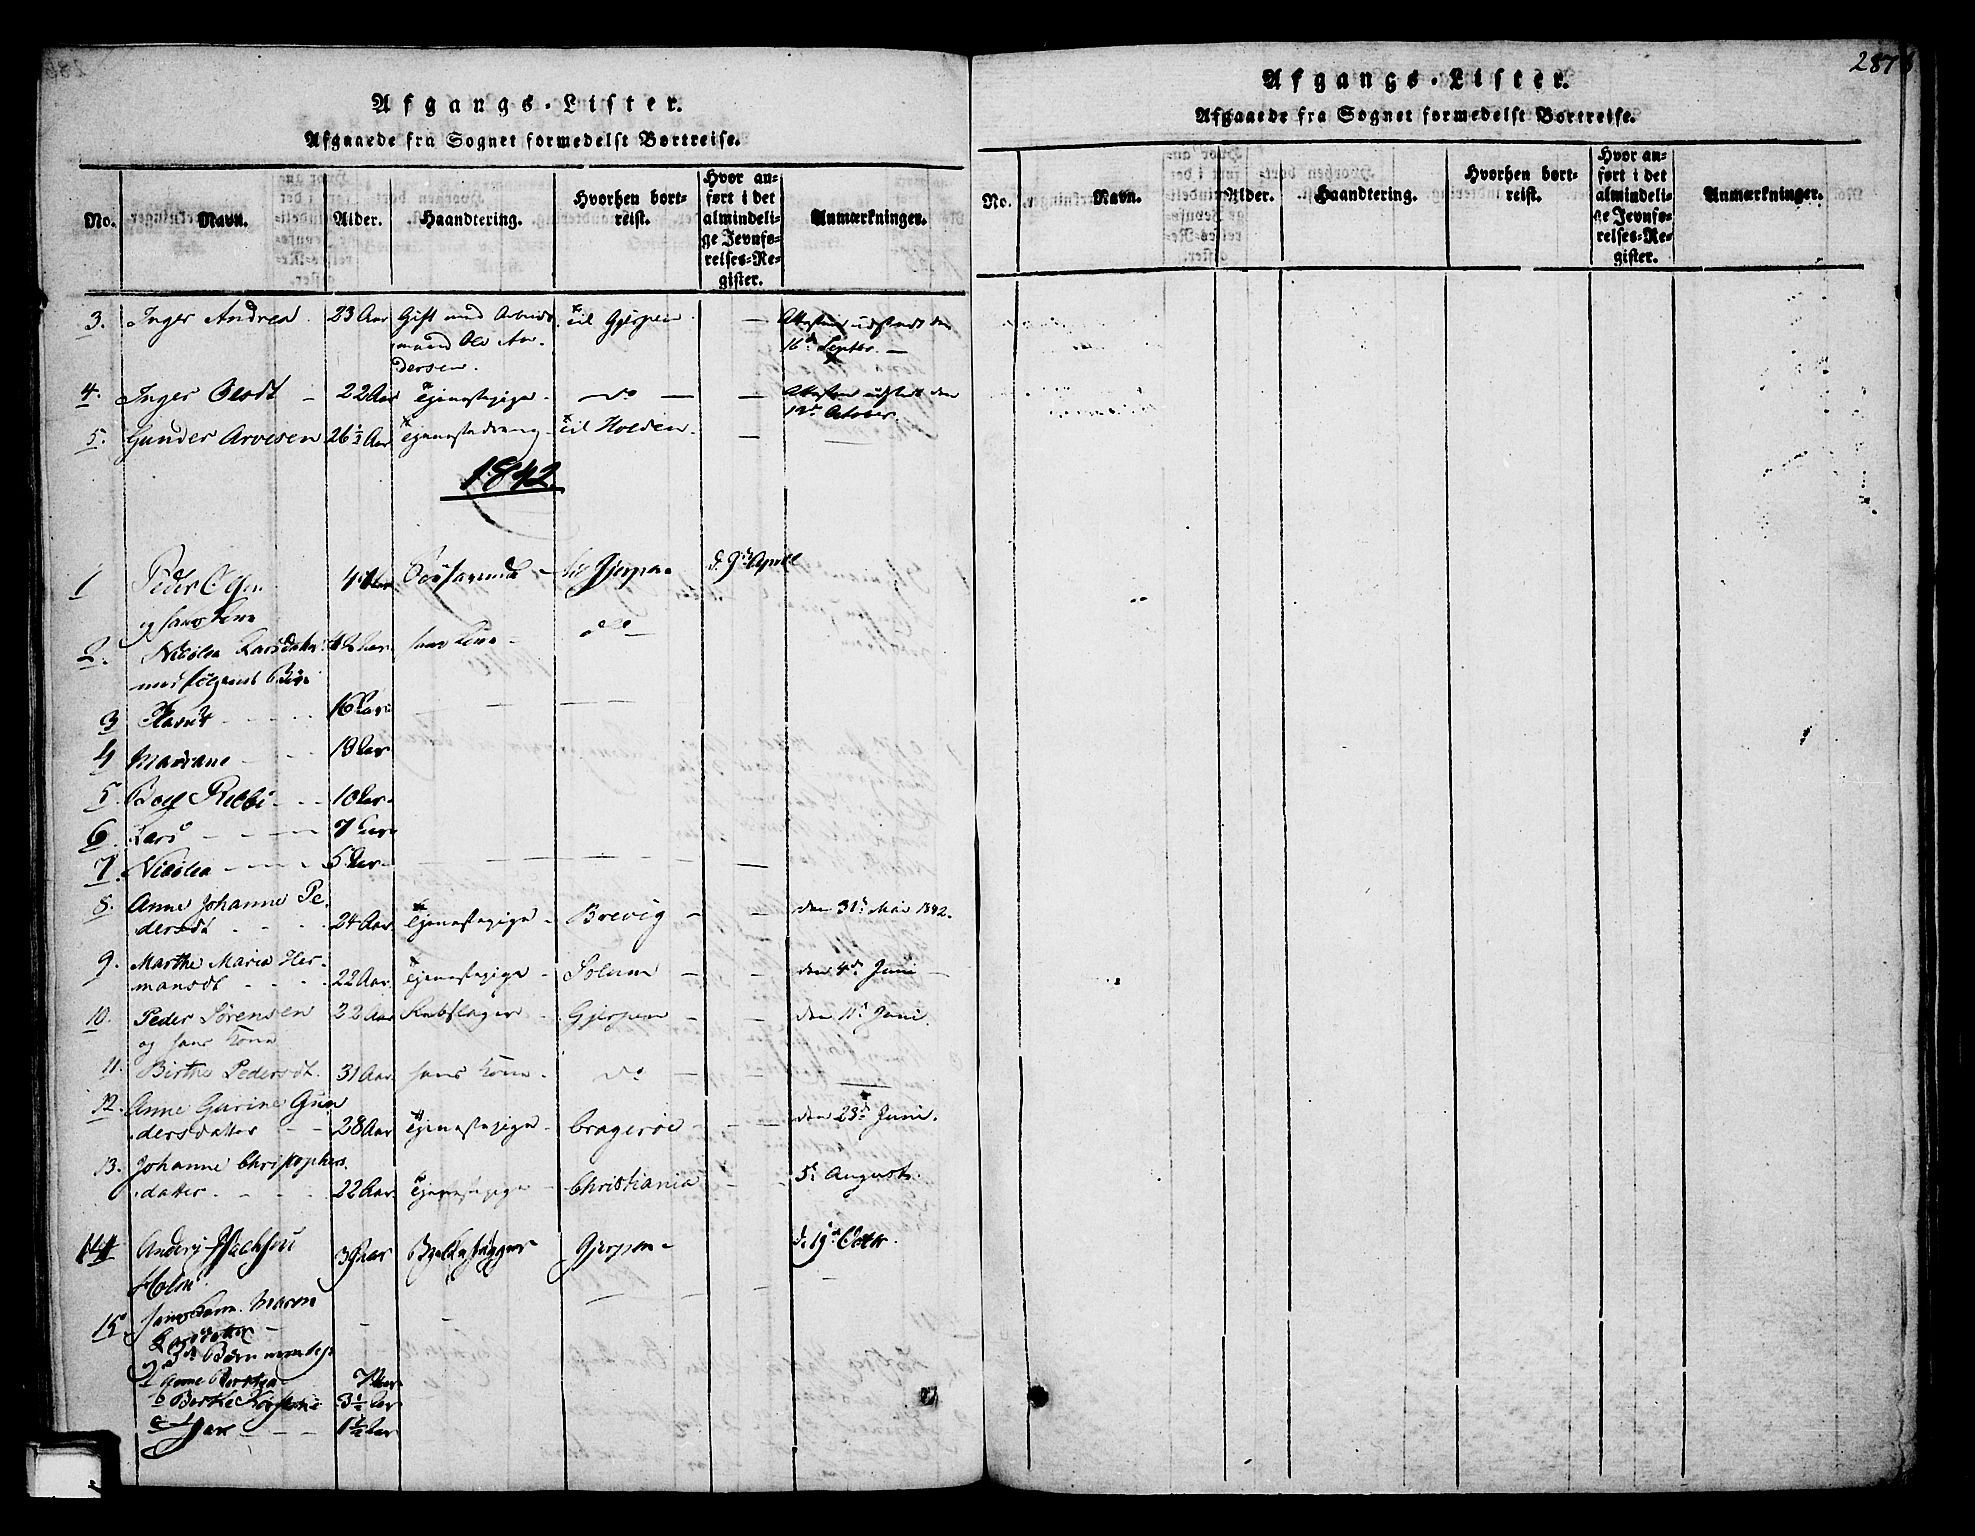 Afgangs-Lister.
Afgaaede fra Sognet formedelst Bortreise.
No. Navn. Alder. Haandtering. Hvorhen bortreist. Hvor anført i det almindelige Jevnførelses-Register. Anmærkninger.
3. Inger Andrea 23 Aar Gift med Arbeids til Gjerpen — Attesten udstædt den
mand Ole An- 16de Septbr. —
dersen.
4. Inger Olsdt — 22 Aar Tjenestepige — do — — Attesten udstædt den
12te October
5. Gunder Arvesen 26½ Aar Tjenestedreng til Holden. —
1842.
1 Peder Olsen 41 Aar til Gjerpen d. 9de April
og hans Kone
2. Nicolea Larsdatter 42 Aar hans Kone do
med følgende Børn
3 16 Aar
4 Mariane 13 Aar
5. 10 Aar
6. Lars 7 Aar
7. Nicolea 5 Aar
8. Anne Johanne Pe-
dersdt 24 Aar Tjenestepige Brevig — — den 31te Mai 1842.
9. Marthe Maria Her-
mansdt 22 Aar Tjenestepige Solum — — den 4de Juni —
10. Peder Sørensen 32 Aar Rebslager Gjerpen — — den 11te Juni.
og hans Kone
11. Birthe Pedersdt. 31 Aar hans Kone do — — —
12. Anne Gurine Gun
dersdatter 28 Aar Tjenestepige Bragerøe — — den 23de Juni.
13. Johanne Christophers
datter 22 Aar Tjenestepige Christiania — — 5te August.
14 Anders Isachsen 39 Aar Gjerpen d. 19de Octbr.
Holm
15. hans Kone Maren
Larsdatter
Børn
1 Anne 7 Aar
Berthe 3½ Aar
1½ Aar
287
Afgangs-Lister.
Afgaaede fra Sognet formedelst Bortreise.
No. Navn. Alder. Haandtering. Hvorhen bortreist. Hvor anført i det almindelige Jevnførelses-Register. Anmærkninger.